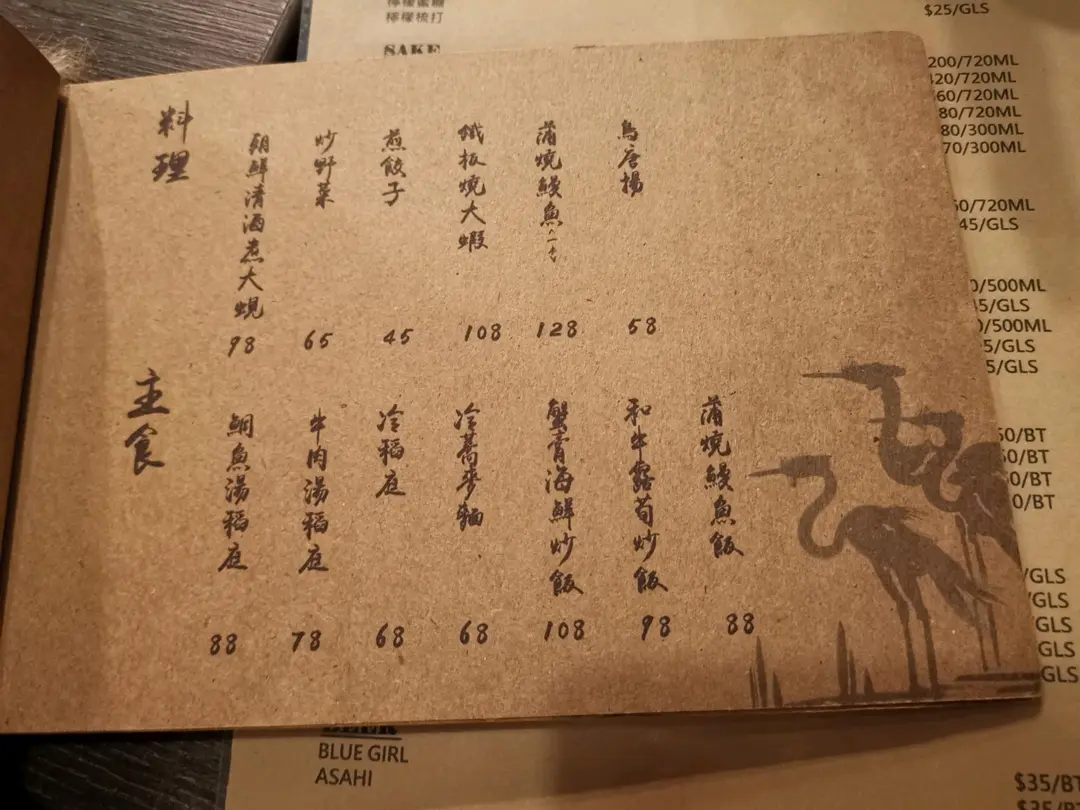 檸檬梳打
$25/GLS
SAKE
200/720ML
20/720ML
60/720ML
80/720ML
80/300ML
70/300ML
50/720ML
45/GLS
0/500ML
45/GLS
0/500ML
5/GLS
5/GLS
50/BT
50/BT
50/BT
0/BT
/GLS
/GLS
GLS
GLS
GLS
料理
朝鮮清酒煮大蜆
98
炒野菜
65
煎餃子
45
鐵板燒大蝦
108
蒲燒鰻魚
128
鳥唐揚
58
主食
鯛魚湯稻庭
88
牛肉湯稻庭
78
冷稻庭
68
冷蕎麥麵
68
蟹膏海鮮炒飯
108
和牛露荀炒飯
98
蒲燒鰻魚飯
88
BLUE GIRL
ASAHI
$35/BT